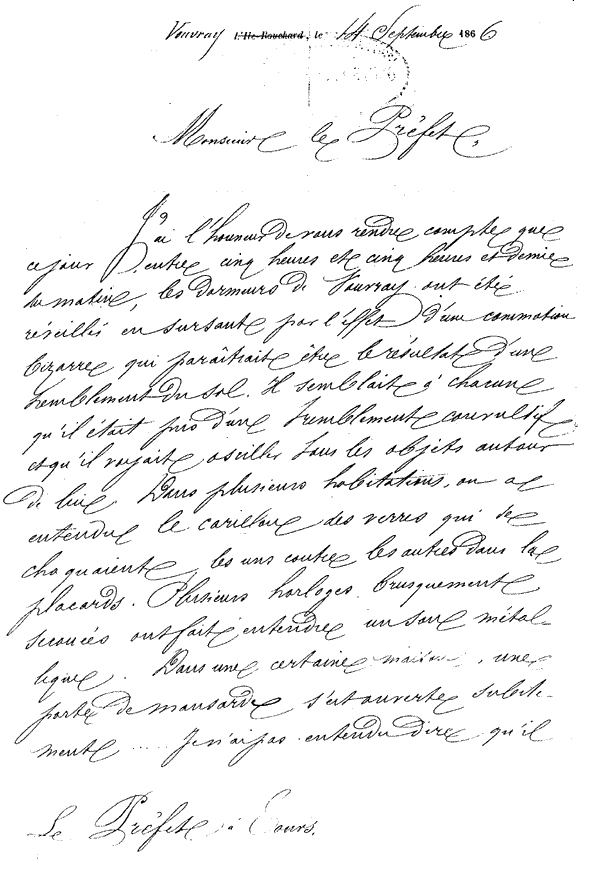 Vouvray L'Ile-Bouchard, le 14 Septembre 1866
Monsieur le Préfet,
J'ai l'honneur de vous rendre compte que
ce jour, entre cinq heures et cinq heures et demie
du matin, les dormeurs de Vouvray ont été
réveillés en sursaut par l'effet d'une commotion
bizarre qui paraîtrait être le résultat d'un
tremblement du sol. Il semblait à chacun
qu'il était pris d'un tremblement convulsif
et qu'il voyait osciller tous les objets autour
de lui. Dans plusieurs habitations, on a
entendu le carillon des verres qui se
choquaient les uns contre les autres dans les
placards. Plusieurs horloges brusquement
secouées ont fait entendre un son métal-
lique. Dans une certaine maison, une
porte de mansarde s'est ouverte subite-
ment .... Je n'ai pas entendu dire qu'il
Le Préfet à Tours.